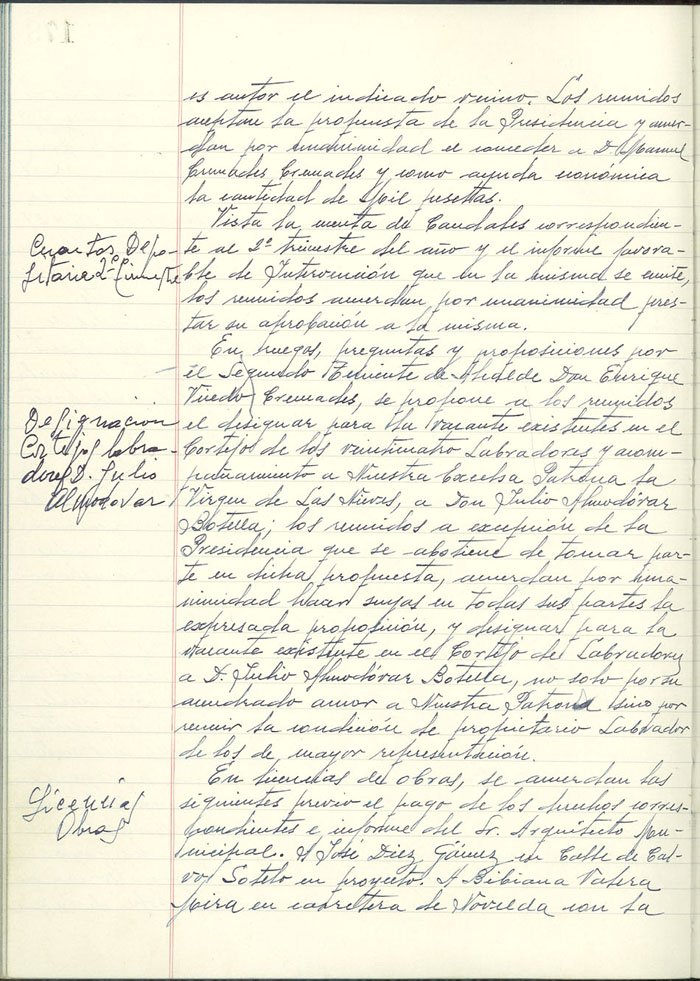 es autor el indicado vecino. Los reunidos
aceptan la propuesta de la Presidencia y acuer-
dan por unanimidad el conceder a D. Manuel
Cremades Cremades y como ayuda económica
la cantidad de Mil pesetas.
Cuentas Depo-
sitaria 2º Trimestre
Vista la cuenta de Caudales correspondien-
te al 2º trimestre del año y el informe favora-
ble de Intervención que en la misma se emite,
los reunidos acuerdan por unanimidad pres-
tar su aprobación a la misma.
En ruegos, preguntas y proposiciones por
el Segundo Teniente de Alcalde Don Enrique
Designación
Cortejo labra-
dores D. Julio
Almodovar
Cremades, se propone a los reunidos
el designar para la vacante existentes en el
Cortejo de los veinticuatro Labradores y acom-
pañamiento a Nuestra Excelsa Patrona la
Virgen de Las Nieves, a Don Julio Almodóvar
Botella; los reunidos a excepción de la
Presidencia que se abstiene de tomar par-
te en dicha propuesta, acuerdan por una-
nimidad hacer suyas en todas sus partes la
expresada proposición, y designar para la
vacante existente en el Cortejo de Labradores
a D. Julio Almodóvar Botella, no solo por su
acendrado amor a Nuestra Patrona sino por
reunir la condición de propietario Labrador
de los de mayor representación.
Licencias
Obras
En licencias de obras, se acuerdan las
siguientes previo el pago de los derechos corres-
pondientes e informe del Sr. Arquitecto Mu-
nicipal. A José Diez Gómez en Calle de Cal-
vo Sotelo en proyecto. A Bibiana Valera
Mira en carretera de Novelda con la